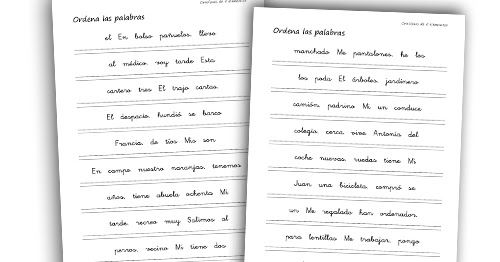 Oraciones de 6 elementos
Ordena las palabras
el En bolso pañuelos. llevo
al médico. voy tarde Esta
cartero tres El trajo cartas.
El despacio. hundió se barco
Francia. de tíos Mis son
En campo nuestro naranjas. tenemos
años. tiene abuela ochenta Mi
tarde. recreo muy Salimos al
perros. vecino Mi tiene dos
Oraciones de 6 elementos
Ordena las palabras
manchado Me pantalones. he los
los poda El árboles. jardinero
camión. padrino Mi un conduce
colegio. cerca vive Antonio del
coche nuevas. ruedas tiene Mi
Juan una bicicleta. compró se
un Me regalado han ordenador.
para lentillas Me trabajar. pongo